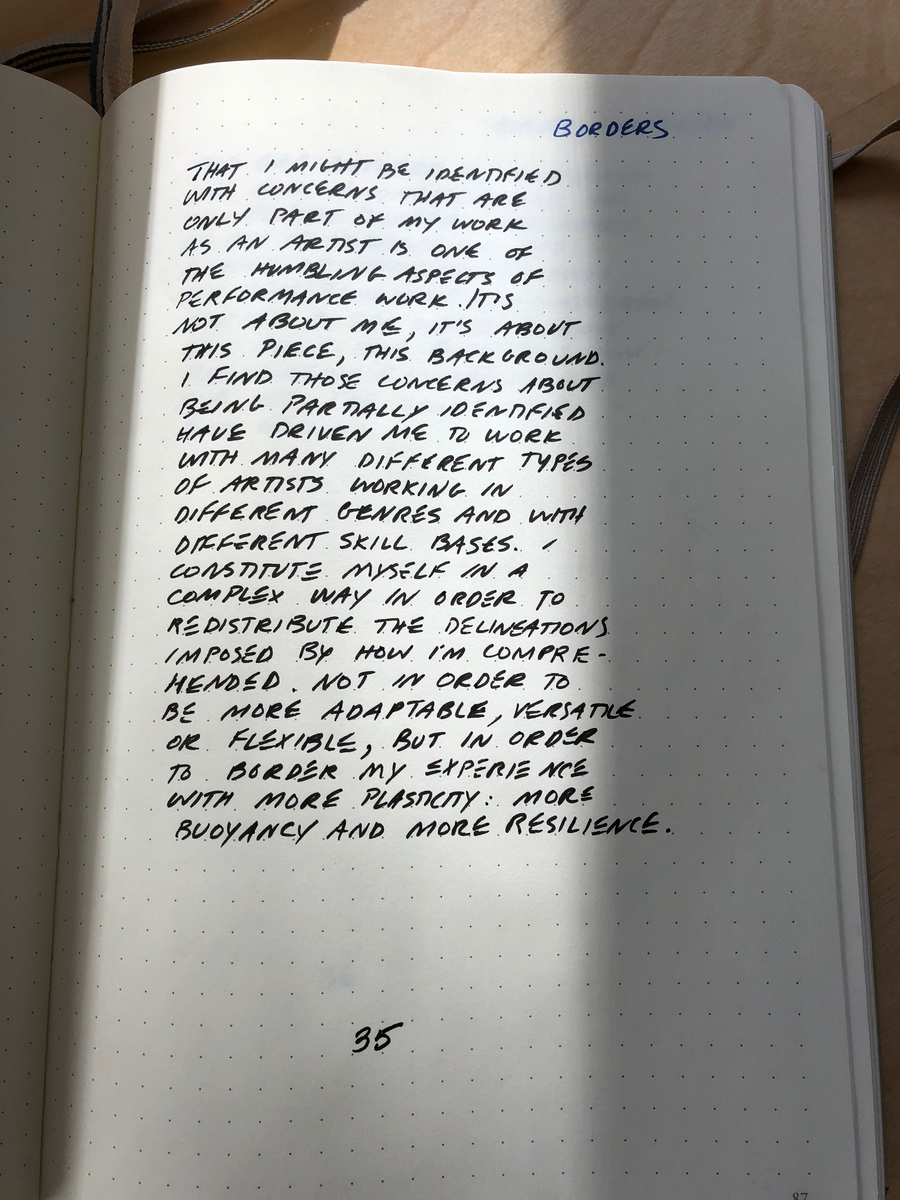 BORDERS
THAT I MIGHT BE IDENTIFIED
WITH CONCERNS THAT ARE
ONLY PART OF MY WORK
AS AN ARTIST IS ONE OF
THE HUMBLING ASPECTS OF
PERFORMANCE WORK. IT'S
NOT ABOUT ME, IT'S ABOUT
THIS PIECE, THIS BACKGROUND.
I FIND THOSE CONCERNS ABOUT
BEING PARTIALLY IDENTIFIED
HAVE DRIVEN ME TO WORK
WITH MANY DIFFERENT TYPES
OF ARTISTS WORKING IN
DIFFERENT GENRES AND WITH
DIFFERENT SKILL BASES. I
CONSTITUTE MYSELF IN A
COMPLEX WAY IN ORDER TO
REDISTRIBUTE THE DELINEATIONS
IMPOSED BY HOW I'M COMPRE-
HENDED. NOT IN ORDER TO
BE MORE ADAPTABLE, VERSATILE
OR FLEXIBLE, BUT IN ORDER
TO BORDER MY EXPERIENCE
WITH MORE PLASTICITY: MORE
BUOYANCY AND MORE RESILIENCE.
35
87